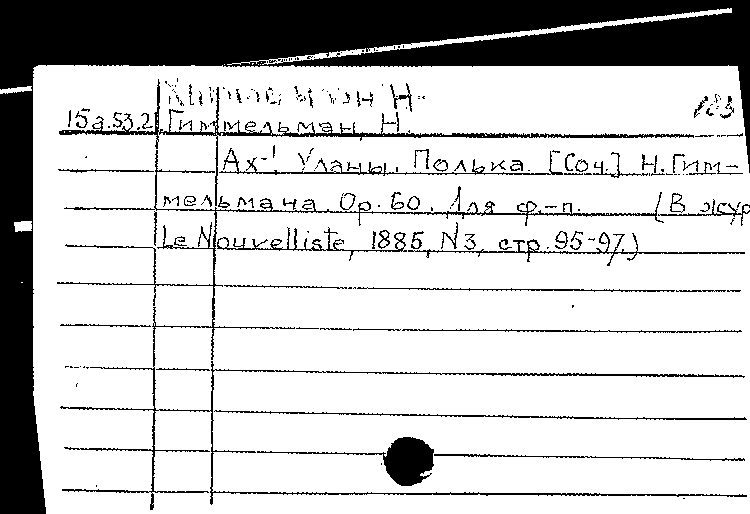 Н. 183
15а.53.2 Гиммельман, Н.
Ах! Уланы. Полька. [Соч.] Н. Гим-
мельмана. Op. 60. Для ф.-п. (В жур
Le Nouvelliste, 1885, N3, стр. 95-97.)